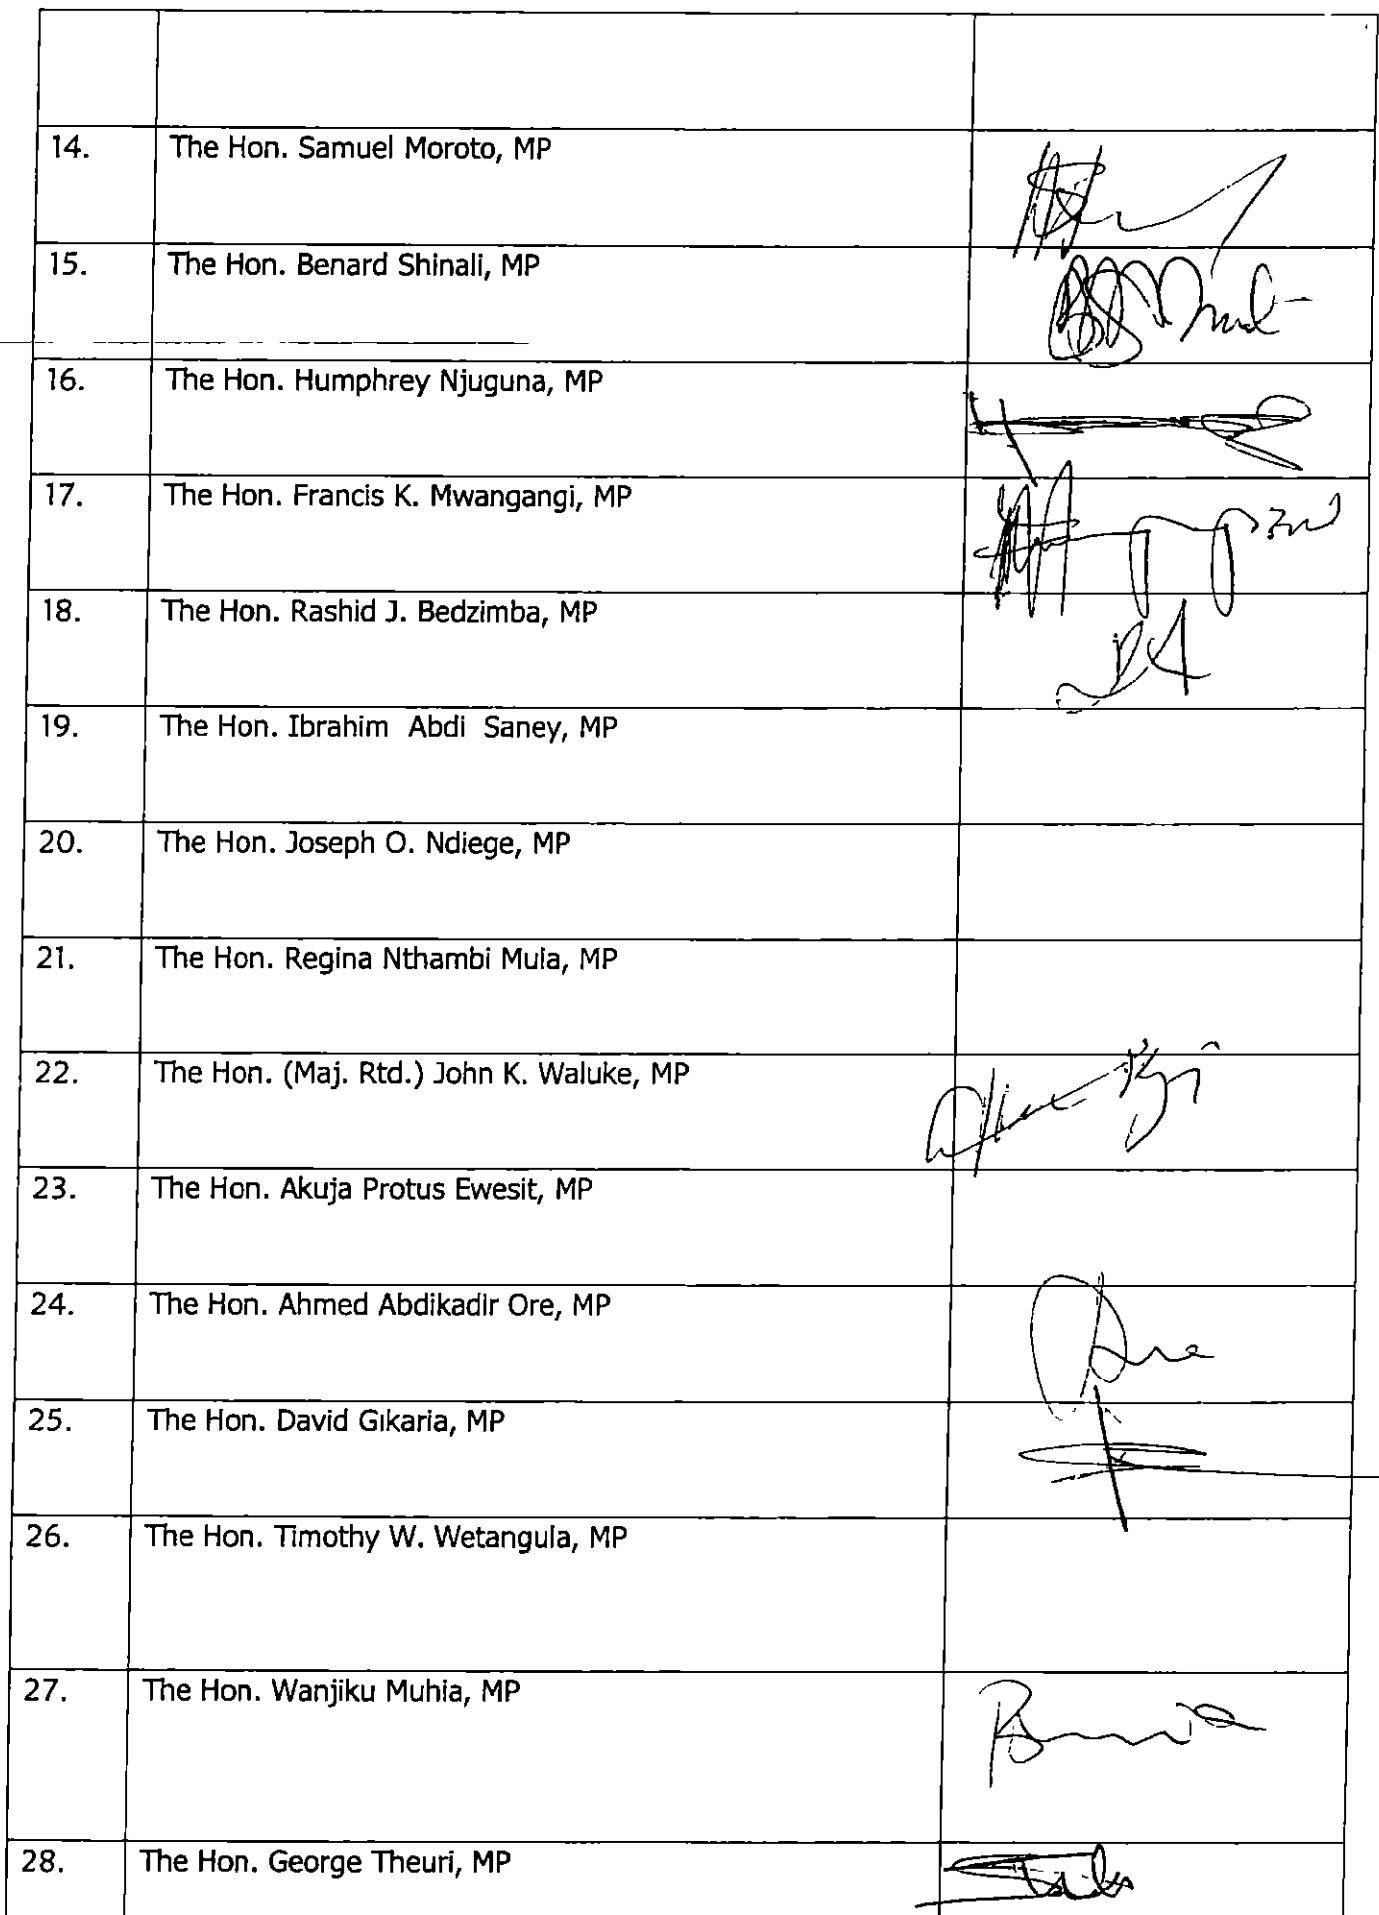 14. The Hon. Samuel Moroto, MP
15. The Hon. Benard Shinali, MP
16. The Hon. Humphrey Njuguna, MP
17. The Hon. Francis K. Mwangangi, MP
18. The Hon. Rashid J. Bedzimba, MP
19. The Hon. Ibrahim Abdi Saney, MP
20. The Hon. Joseph O. Ndiege, MP
21. The Hon. Regina Nthambi Mula, MP
22. The Hon. (Maj. Rtd.) John K. Waluke, MP
23. The Hon. Akuja Protus Ewesit, MP
24. The Hon. Ahmed Abdikadir Ore, MP
25. The Hon. David Gikaria, MP
26. The Hon. Timothy W. Wetangula, MP
27. The Hon. Wanjiku Muhia, MP
28. The Hon. George Theuri, MP